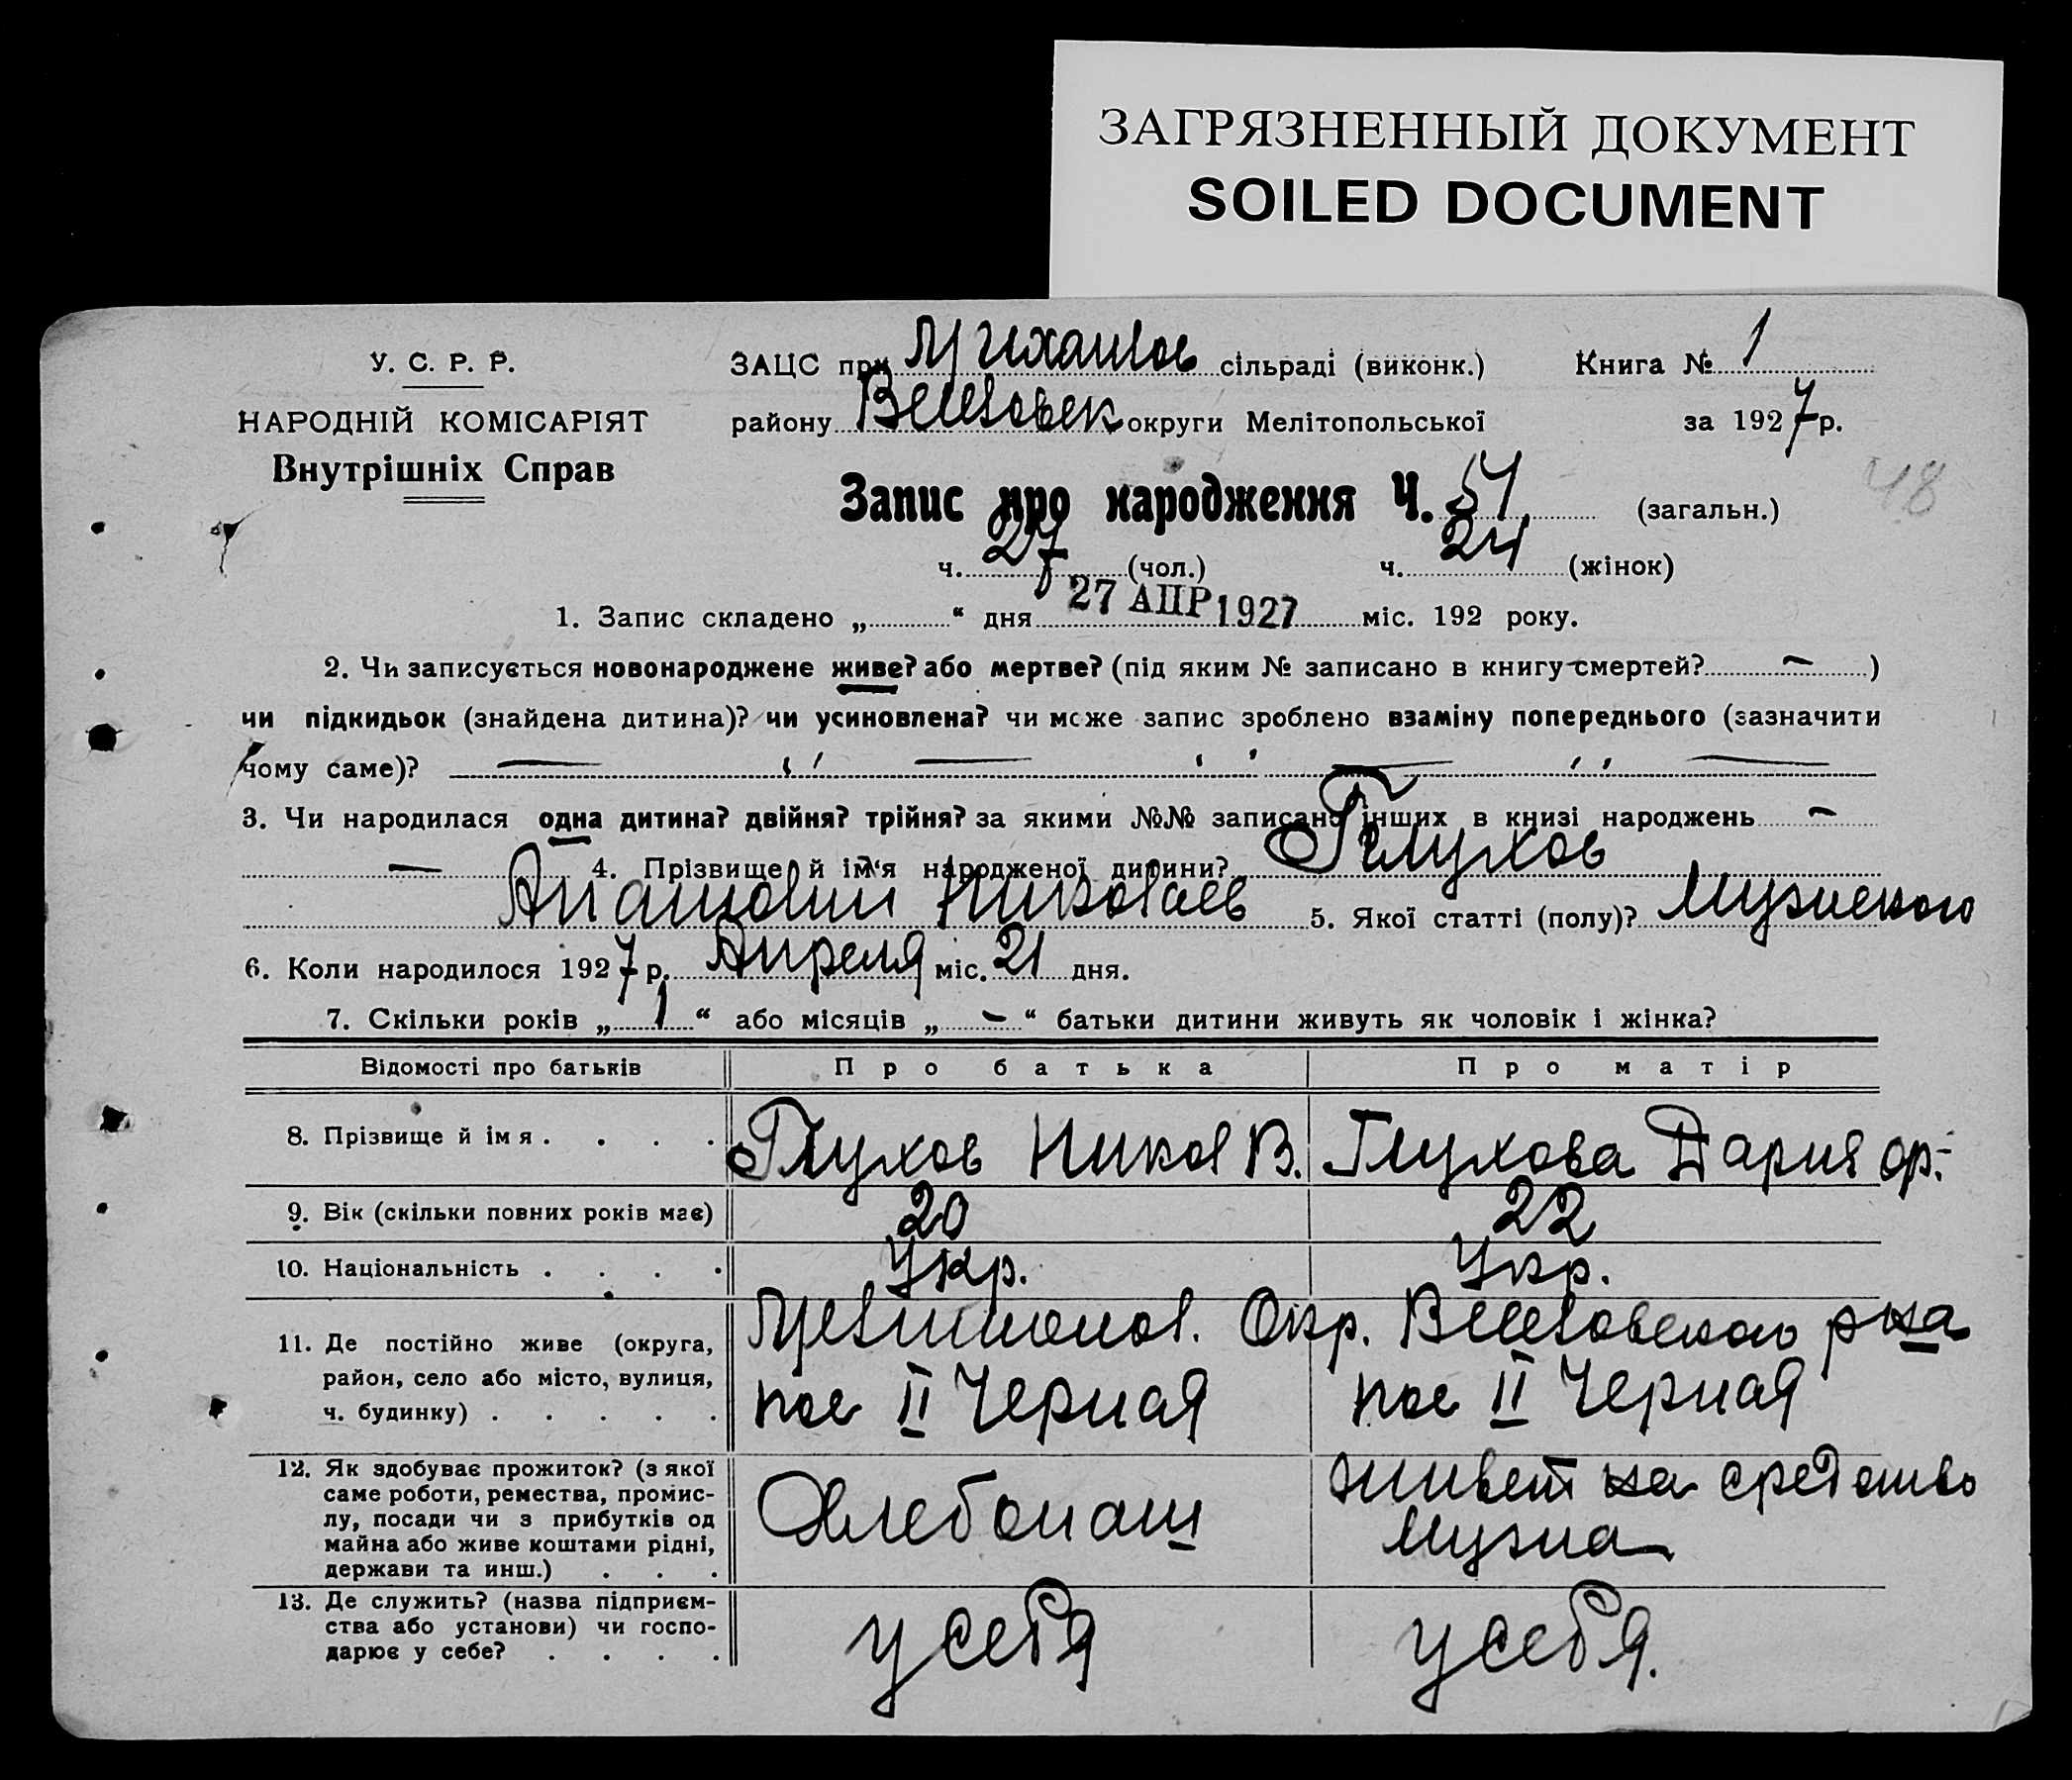 ЗАГРЯЗНЕННЫЙ ДОКУМЕНТ
SOILED DOCUMENT
У. С. Р. Р.
НАРОДНІЙ КОМІСАРІЯТ
Внутрішніх Справ
ЗАЦС при Михайлов сільраді (виконк.) Книга № 1
району Веселовск округи Мелітопольської за 1927 р.
48
Запис про народження Ч. 51 (загальн.)
ч. 27 (чол.) ч. 24 (жінок)
1. Запис складено „ “ дня 27 АПР 1927 міс. 192 року.
2. Чи записується новонароджене живе? або мертве? (під яким № записано в книгу смертей? — )
чи підкидьок (знайдена дитина)? чи усиновлена? чи може запис зроблено взаміну попереднього (зазначити
чому саме)? — " — " — " —
3. Чи народилася одна дитина? двійня? трійня? за якими №№ записано інших в книзі народжень —
— 4. Прізвище й ім'я народженої дитини? Глухов
Анатолий Николаев 5. Якої статті (полу)? Мужского
6. Коли народилося 1927 р. Апреля міс. 21 дня.
7. Скільки років „ 1 “ або місяців „ — “ батьки дитини живуть як чоловік і жінка?
Відомості про батьків Про батька Про матір
8. Прізвище й імя . . . . Глухов Никол В. Глухова Дария ор.
9. Вік (скільки повних років має) 20 22
10. Національність . . . . Укр. Укр.
11. Де постійно живе (округа, район, село або місто, вулиця, ч. будинку) . . . . . Мелитопол. Окр. Веселовского р на
пос II Черная пос II Черная
12. Як здобуває прожиток? (з якої
саме роботи, ремества, промис-
лу, посади чи з прибутків од
майна або живе коштами рідні,
держави та инш.) . . . Хлебопаш живет на средство
мужа
13. Де служить? (назва підприєм-
ства або установи) чи госпо-
дарює у себе? . . . . у себя у себя.